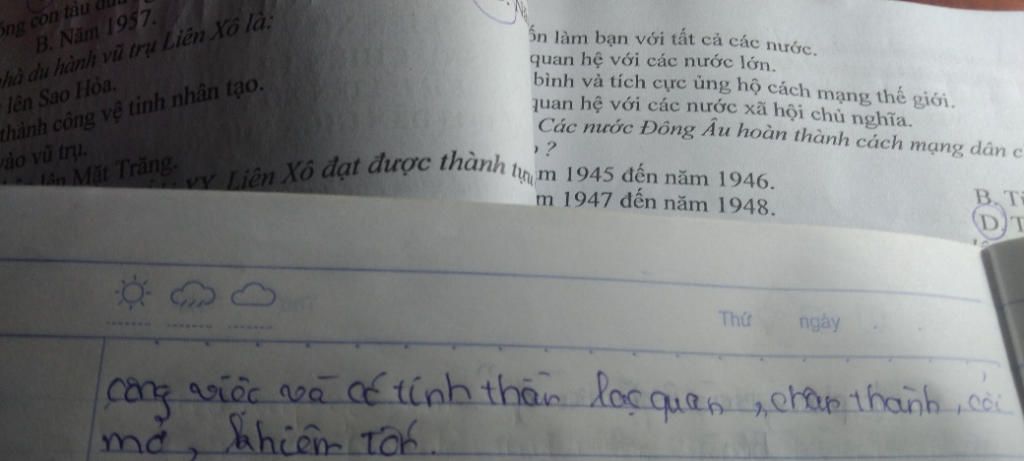 ống con tàu
B. Năm 1957.
nhà du hành vũ trụ Liên Xô là:
lên Sao Hỏa.
thành công vệ tinh nhân tạo.
vào vũ trụ.
lên Mặt Trăng.
XX, Liên Xô đạt được thành tựu
ốn làm bạn với tất cả các nước.
quan hệ với các nước lớn.
bình và tích cực ủng hộ cách mạng thế giới.
quan hệ với các nước xã hội chủ nghĩa.
Các nước Đông Âu hoàn thành cách mạng dân c
?
m 1945 đến năm 1946.
m 1947 đến năm 1948.
B. Từ
D. T
Thứ ngày
công việc và có tinh thần lạc quan, chân thành, cởi
mở, khiêm tốn.